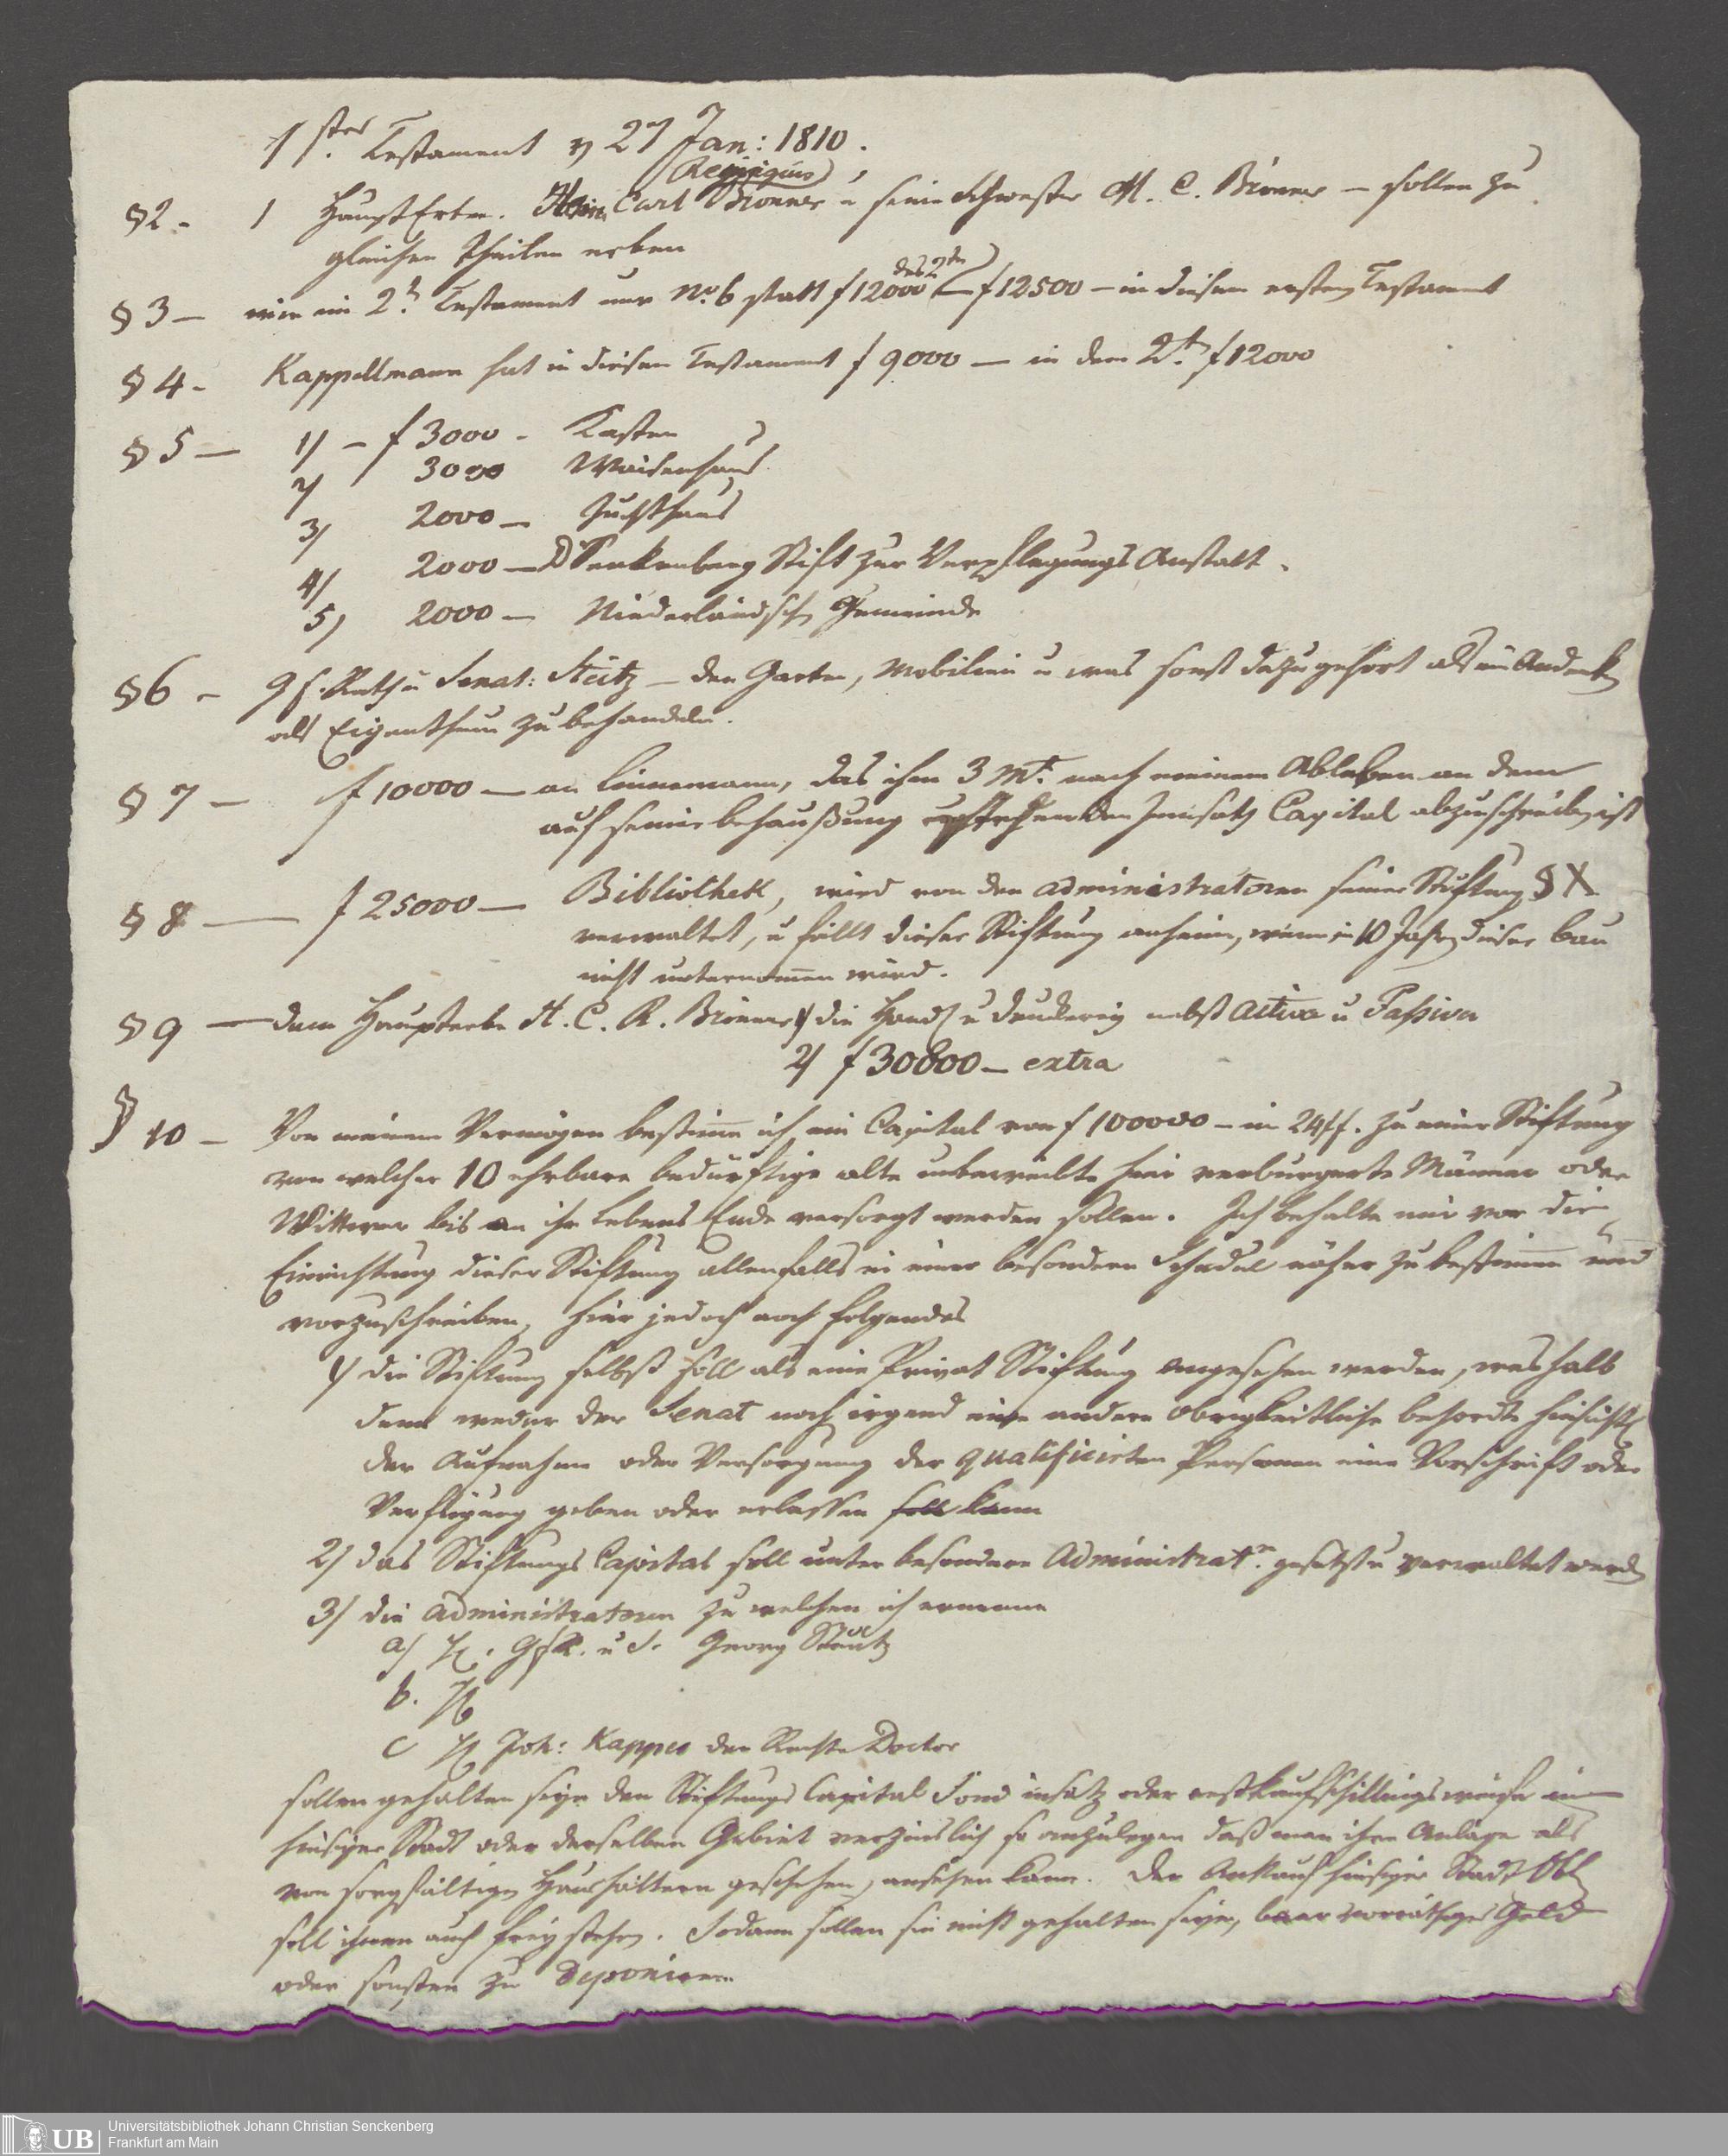 1ster Testament v 27 Jan: 1810.
(Remigius)
§2 - 1 HauptErben. Heinr Carl Brönner u seine Schwester M. C. Brönner — sollen zu
gleichen Theilen erben
des 2ten
§ 3 — wie im 2t Testament nur No. 6 statt f 12000 — f 12500 — in diesem ersten Testament
§ 4 - Kappellmann hat in diesem Testament f 9000 — in dem 2t. f 12000
§ 5 — 1) — f 3000 - Kasten
2) 3000 Waisenhaus
3) 2000 — Zuchthaus
4) 2000 — D Senkenberg Stift zur Verpflegungs Anstalt.
5) 2000 — Niederländsch Gemeinde
§6 — Gh. Rath u Senat: Steitz — den Garten, Mobilien u was sonst dazu gehört als ein Andenken
als Eigenthum zu behandeln.
§ 7 — f 10000 — an Linnemann, das ihm 3 Mt. nach meinem Ableben an dem
auf seiner behaußung stehenden Insatz Capital abzuschreiben ist
§ 8 — f 25000 — Bibliothek, wird von den administratoren seiner Stiftung § X
verwaltet, u fällt dieser Stiftung anheim, wenn in 10 Jahren dieser bau
nicht unternommen wird.
§ 9 — dem Haupterbe H. C. R. Brönner 1) die Handl u druckerey nebst Activa u Passiva
2) f 30000 — extra
§ 10 — Von meinem Vermögen bestimme ich ein Capital von f 100000 — in 24 f. zu einer Stiftung
von welcher 10 ehrbare bedürftige alte unbeweibte hier verburgerte Männer oder
Wittwer bis an ihr Lebens Ende versorgt werden sollen. Ich behalte mir vor die
Einrichtung dieser Stiftung allenfalls in einer besondern Schedul näher zu bestimmen und
vorzuschreiben, hier jedoch noch folgendes
1) die Stiftung selbst soll als eine Privat Stiftung angesehen werden, weshalb
denn weder der Senat noch irgend eine andere obrigkeitliche behörde hinsichtl
der Aufnahme oder Versorgung der qualificirten Personen eine Vorschrift oder
Verfügung geben oder erlassen soll kann
2) das Stiftungs Capital soll unter besondere Administratn. gesetzt u verwaltet werd
3) die administratoren zu welchen ich ernenne
a) H. Gh R. u S. Georg Steitz
b. H
c H Joh: Kappes der Rechte Doctor
sollen gehalten seyn den Stiftungs Capital Fond insatz oder restkaufschillingsweise in
hiesiger Stadt oder derselben Gebiet verzinslich so anzulegen daß man ihre Anlage als
von sorgfältigen Haushältern geschehen, ansehen kann. Der Ankauf hiesiger Stadt Obl
soll ihnen auch frey stehen. Sodann sollen sie nicht gehalten seyn, baar vorräthiges Geld
oder sonsten zu deponiren
Universitätsbibliothek Johann Christian Senckenberg
Frankfurt am Main
UB